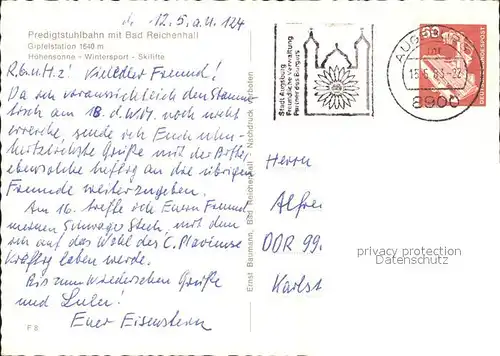 12.5.a.U. 124
Predigtstuhlbahn mit Bad Reichenhall
Gipfelstation 1640 m
Höhensonne - Wintersport - Skilifte
R.G.u.H.z! Vieledler Freund!
Da ich voraussichtlich den Stamm-
tisch am 18. d. WM. noch nicht
erreiche, sende ich Euch uhu-
herzlichste Grüße mit der Bitte,
ebensolche heftig an die übrigen
Freunde weiterzugeben.
Am 16. treffe ich Euern Freund
meinen Schwager Stech, mit dem
ich auf das Wohl des C. Plaviense
kräftig laben werde.
Bis zum Wiedersehen Grüße
und Lulu!
Euer Eisenstern
F 8
Ernst Baumann, Bad Reichenhall Nachdruck verboten
Stadt Augsburg
Freundliche Verwaltung
Partner des Bürgers
AUGSBURG
8900
50
DEUTSCHE BUNDESPOST
Herrn
Alfre
DDR 99.
Karlst
privacy protection
Datenschutz